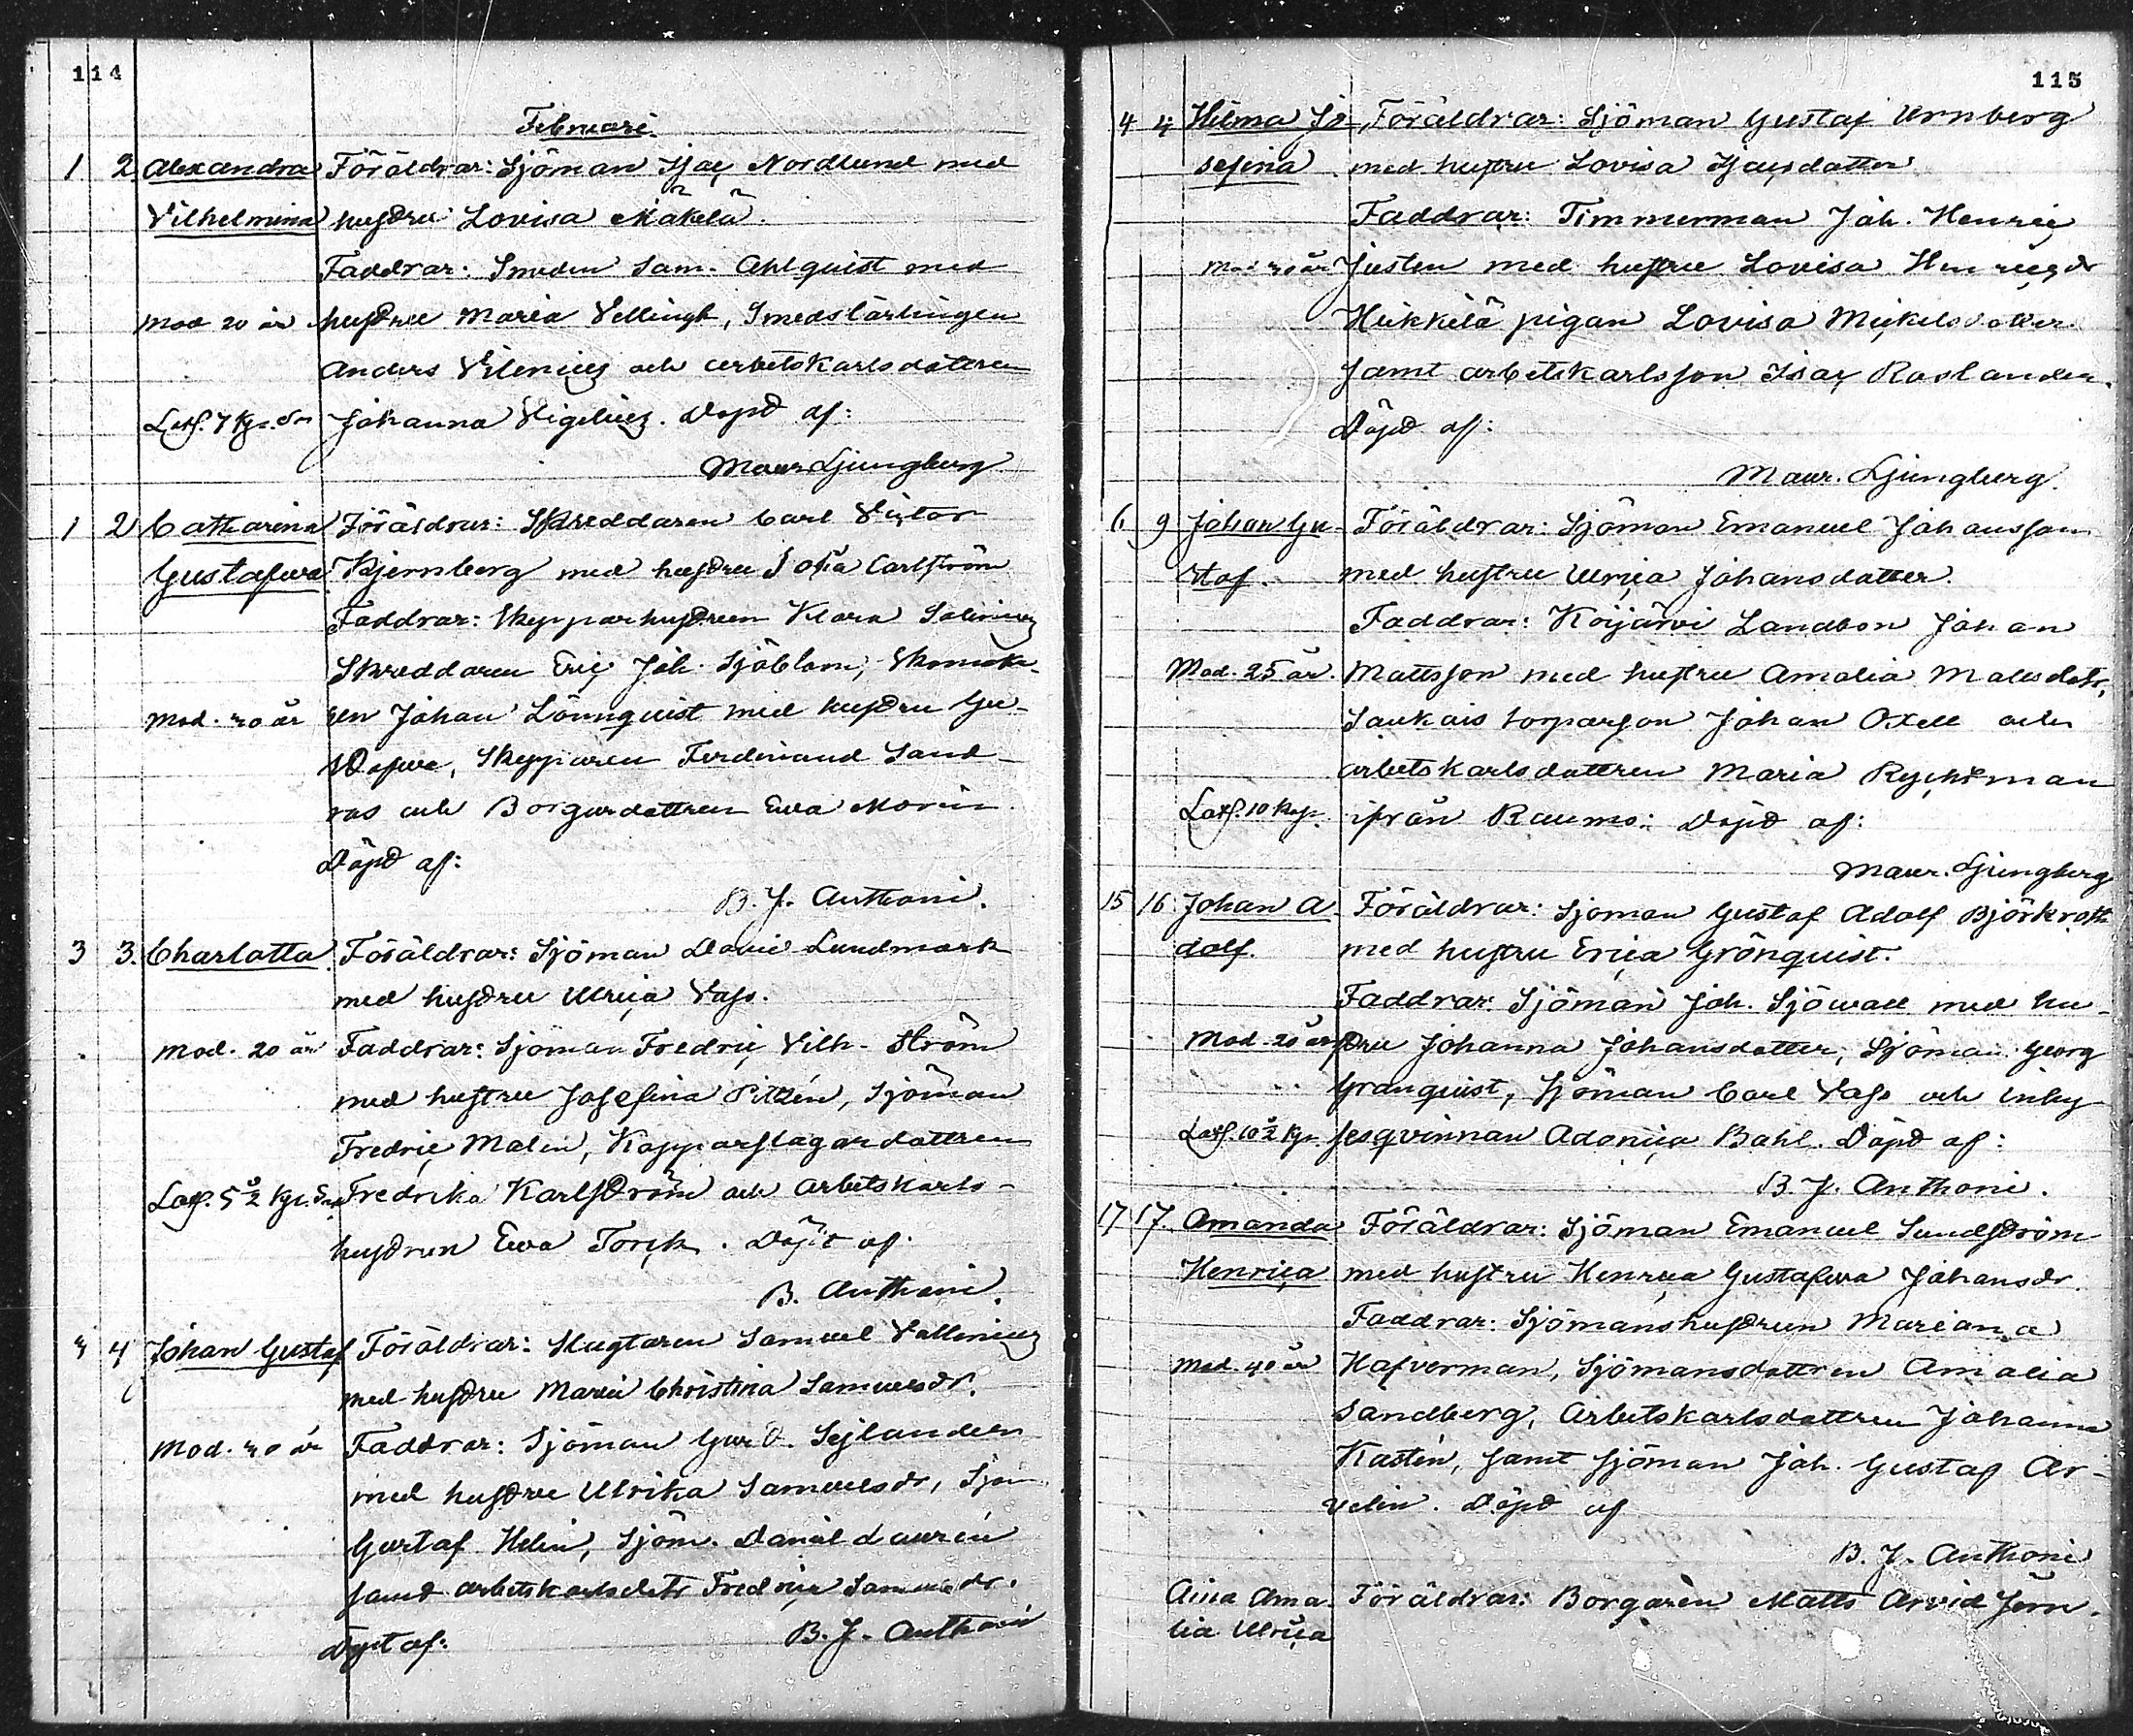 114
Februari.
1. 2. Alexandra Föräldrar: Sjöman Isac Nordlund med
Vilhelmina hustru Lovisa Mäkelä.
Faddrar: Smeden Sam. Ahlquist med
Mod 20 år hustru Maria Vellingk, Smedslärlingen
Anders Vilenius och arbetskarlsdottren
7 Kop. Johanna Vigelius. Döpt af:
Maur. Ljungberg
1 2 Catharina Föräldrar: Skreddaren Carl Victor
Gustafwa Kjernberg med hustru Sofia Carlström
Faddrar: Skepparhustrun Klara Salinius
Skreddaren Eric Joh. Sjöblom, Skomak-
Mod. 20 år ren Johan Lönnquist med hustru Gu-
stafwa, Skepparen Ferdinand Sand-
ros och Borgardottren Ewa Morin.
Döpt af:
B. J. Anthoni.
3 3. Charlotta. Föräldrar: Sjöman David Lundmark
med hustru Ulrica Vass.
Mod. 20 år Faddrar: Sjöman Fredric Vilh. Ström
med hustru Josefina Pitzén, Sjöman
Fredric Malin, Kopparslagardottren
Fredrika Karlström och arbetskarls-
hustrun Ewa Torck. Döpt af.
B. Anthoni.
4 Johan Gustaf Föräldrar: Slagtaren Samuel Vallenius
med hustru Maria Christina Samuelsdr.
Mod. 20 år Faddrar: Sjöman Gust. Sejlander
med hustru Ulrika Samuelsdr, Sjöm
Gustaf Helin, Sjöm. Daniel Laurén
samt arbetskarlsdotr Fredrica Samuelsdr.
Döpt af: B. J. Anthoni
115
4 4 Hilma Jo- Föräldrar: Sjöman Gustaf Arnberg
sefina med hustru Lovisa Isacsdotter
Faddrar: Timmerman Joh. Henric
Mod 20 år Justen med hustru Lovisa Henricsdr
Heikkilä pigan Lovisa Mickelsdotter
samt arbetskarlsson Isac Roslander.
Döpt af:
Maur. Ljungberg.
6 9 Johan Gu- Föräldrar: Sjöman Emanuel Johansson
staf. med hustru Ulrica Johansdotter.
Faddrar: Koijärvi Landbon Johan
Mod. 25 år. Mattsson med hustru Amalia Mattsdotr,
Saukais torparson Johan Oxell och
arbetskarlsdottren Maria
10 Kop. ifrån Raumo: Döpt af:
Maur. Ljungberg
15 16 Johan A- Föräldrar: Sjöman Gustaf Adolf Björkroth
dolf. med hustru Erica Grönquist.
Faddrar: Sjöman Joh. Sjöwall med hu-
Mod. 20 år stru Johanna Johansdotter, Sjöman Georg
Granquist, sjöman Carl Vass och inhy-
sesqvinnan Adonica Bahl. Döpt af:
B. J. Anthoni.
17 17. Amanda Föräldrar: Sjöman Emanuel Sundström
Henrica med hustru Henrica Gustafwa Johansdr.
Faddrar: Sjömanshustrun Mariana
Mod. 40 år Hafverman, Sjömansdottren Amalia
Sandberg, Arbetskarlsdottren Johanna
Kastén, samt sjöman Joh. Gustaf Ar-
velin. Döpt af
B. J. Anthoni
Aina Ama- Föräldrar: Borgaren Matts Arvid Jern-
lia Ulrica